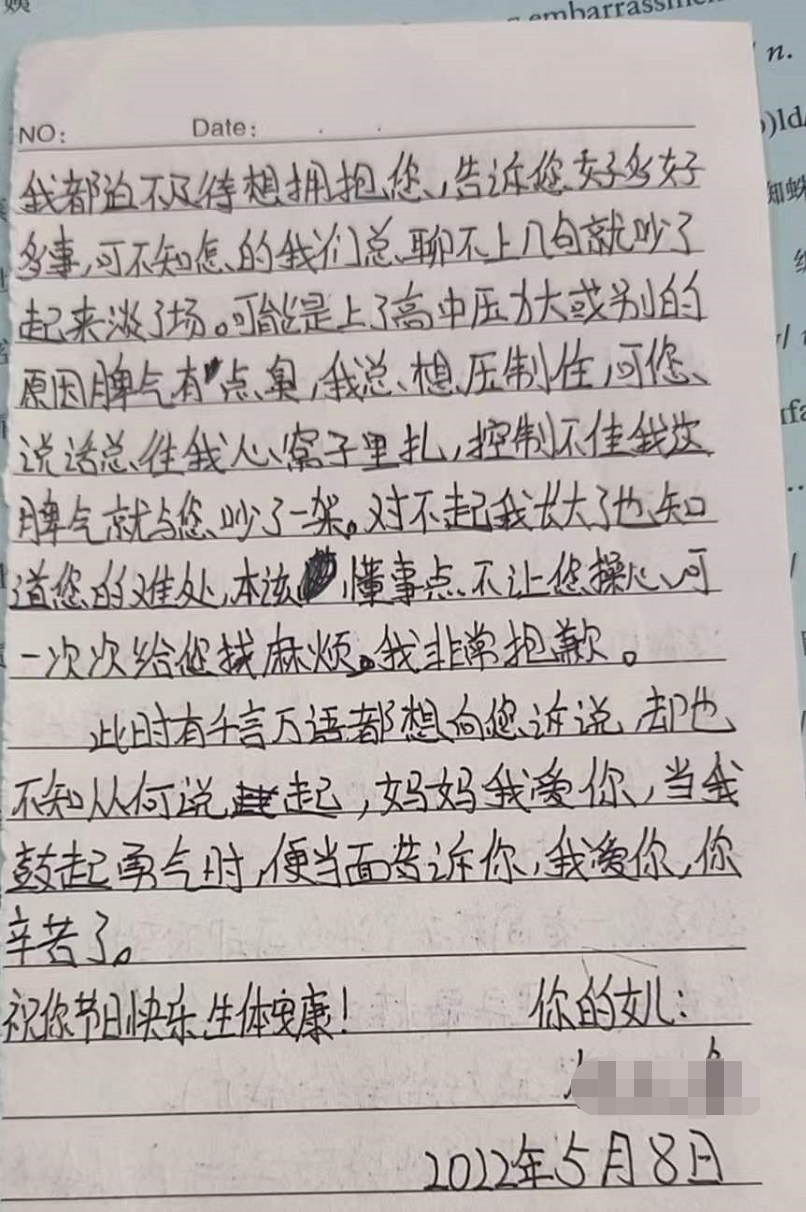 embarrassment
n.
NO:
Date:
我都迫不及待想拥抱您,告诉您好多好
多事,可不知怎的我们总聊不上几句就吵了
起来淡了场。可能是上了高中压力大或别的
原因脾气有点臭,我总想压制住,可您
说话总往我心窝子里扎,控制不住我这
脾气就与您吵了一架。对不起我长大了也知
道您的难处,本该懂事点不让您操心,可
一次次给您找麻烦。我非常抱歉。
此时有千言万语都想向您诉说,却也
不知从何说起,妈妈我爱你,当我
鼓起勇气时,便当面告诉你,我爱你,你
辛苦了。
祝你节日快乐 身体健康!
你的女儿:
2022年5月8日